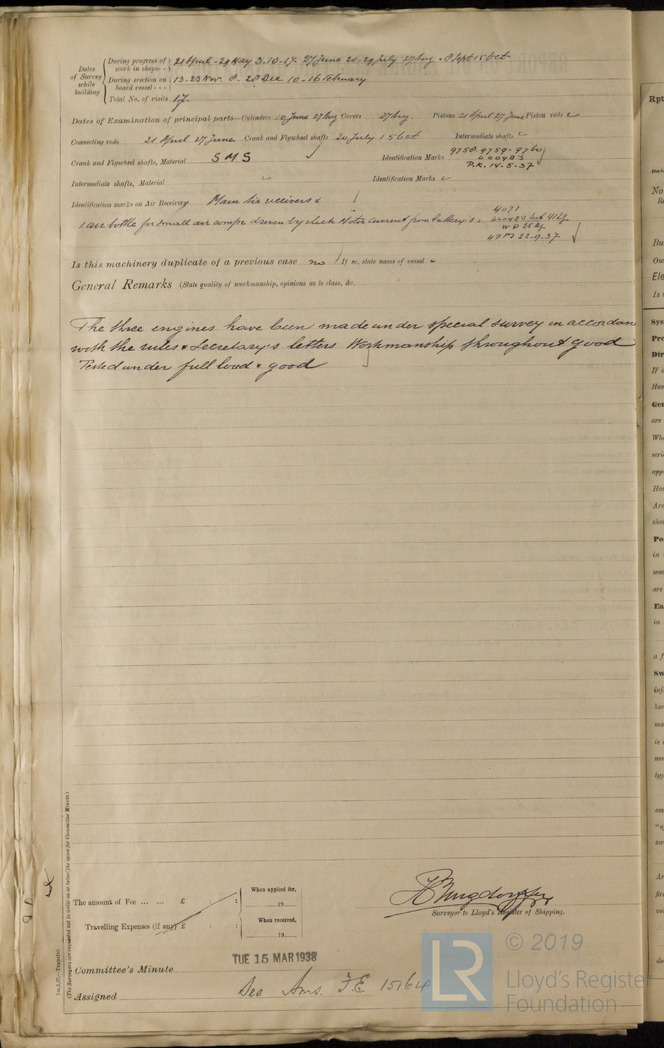 Dates of Survey while building
During progress of work in shops - - 21 April - 29 May 3-10-17- 27 June 20-29 July 27 Aug. 8 Sept 15 Oct
During erection on board vessel - - - 13-23 Nov. 8. 28 Dec 10-16 February
Total No. of visits 17.
Dates of Examination of principal parts—Cylinders 10 June 27 Aug Covers 27 Aug. Pistons 21 April 27 June Piston rods
Connecting rods 21 April 27 June. Crank and Flywheel shafts 20 July 15 Oct Intermediate shafts
Crank and Flywheel shafts, Material S M S Identification Marks 9758. 9759-9760
P.K. 14-5-37
Intermediate shafts, Material Identification Marks
Identification marks on Air Receivers Main air receivers
1 air bottle for small air compr driven by electr Motor current from battery
4071
W P 25
22-9-37
Is this machinery duplicate of a previous case no If so, state name of vessel
General Remarks (State quality of workmanship, opinions as to class, &c.
The three engines have been made under special survey in accordan
with the rules & Secretary's letters Workmanship throughout good
Tested under full load & good
The amount of Fee ... ... £ : :
When applied for,
19
Travelling Expenses (if any) £ : :
When received,
19
Surveyor to Lloyd's Register of Shipping.
TUE 15 MAR 1938
Committee's Minute
Assigned See Ams. F.E. 15164
(The Surveyors are requested not to write on or below the space for Committee Minute.)
© 2019
LR
Lloyd's Register
Foundation